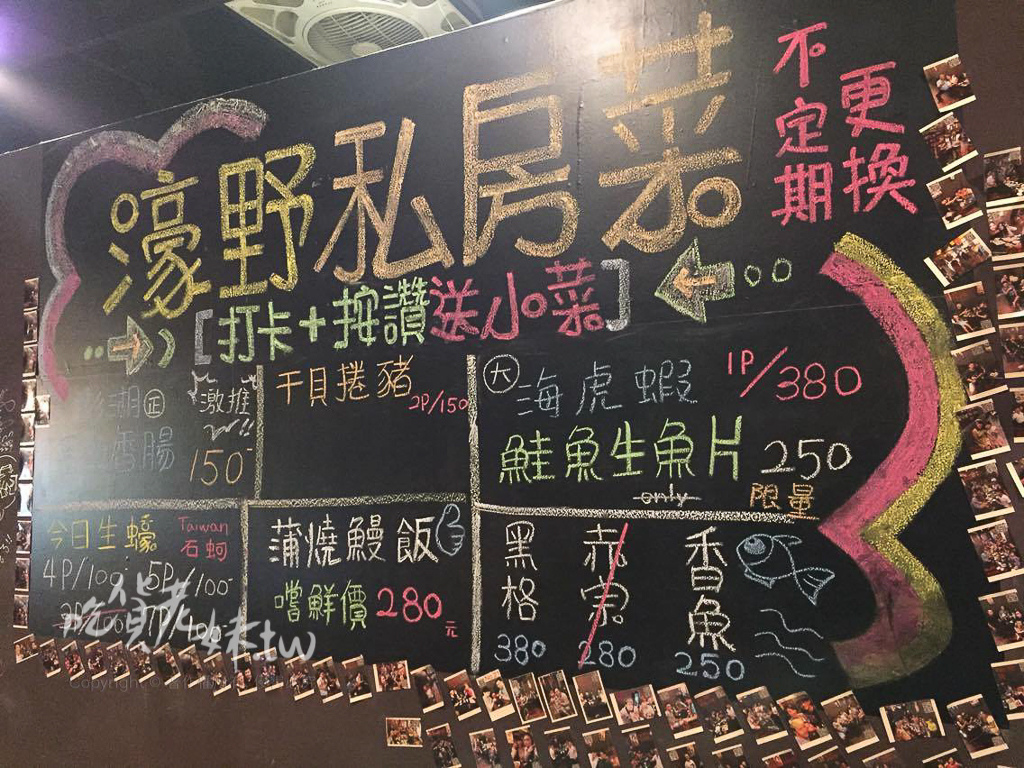 濠野私房菜
不定期
更換
[打卡+按讚送小菜]
湖㊣ 激推!!
香腸 150-
干貝捲豬 2P/150
大 海虎蝦 1P/380
鮭魚生魚片 250
only 限量
今日生蠔 Taiwan 石蚵
4P/100- 5P/100-
蒲燒鰻飯
嚐鮮價280元
黑格 380
赤宗 280
香魚 250
吃貨老妹.tw
Copyright ©